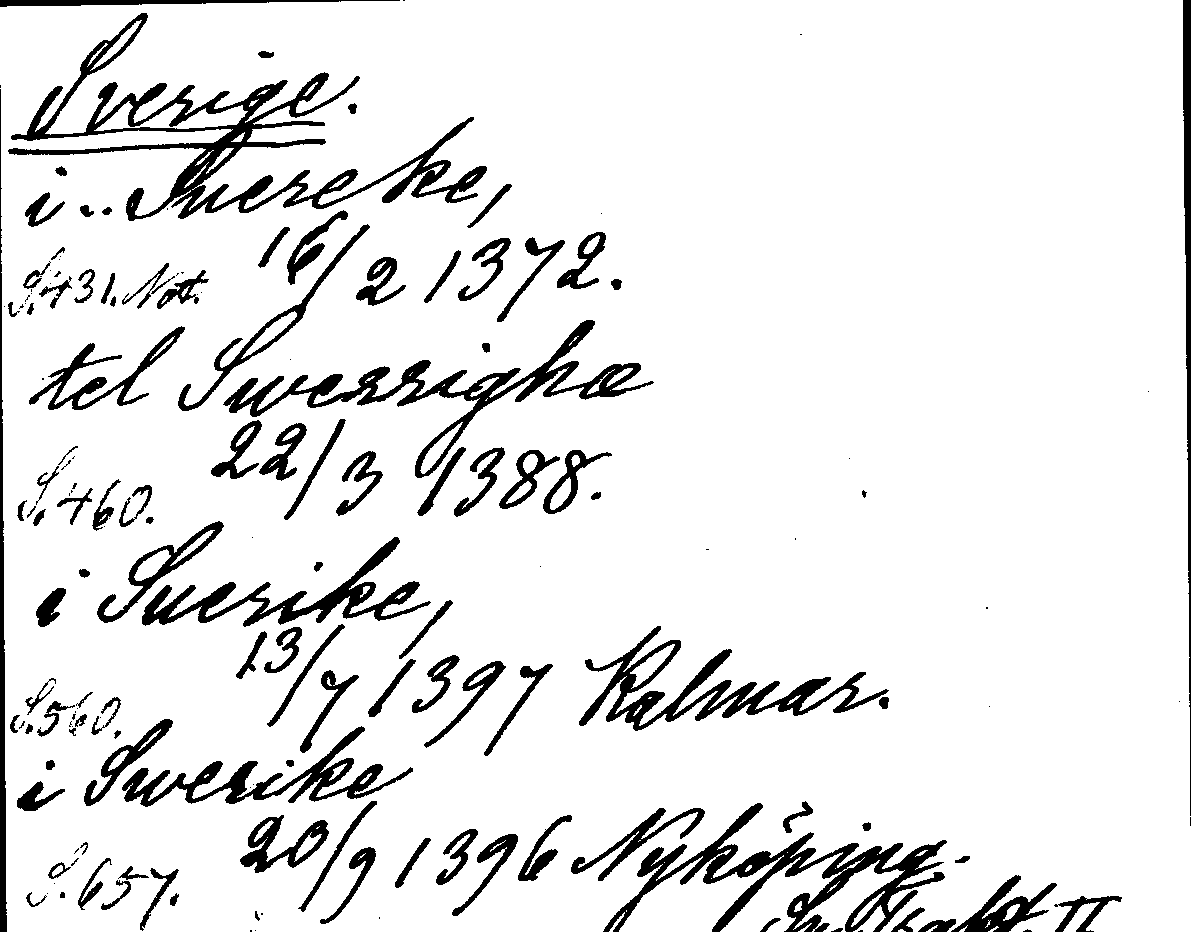 Sverige.
i.. Suereke,
S.431. Not. 16/2 1372.
tel Swerrighæ
S.460. 22/3 1388.
i Suerike,
S.560. 13/7 1397 Kalmar.
i Swerike
S.657. 20/9 1396 Nyköping.
Sv. Trakt. II